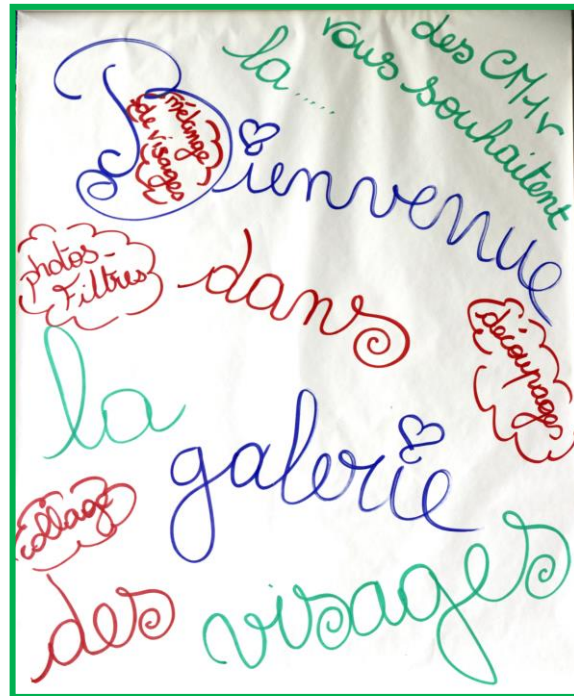 des
vous souhaitent
la.....
Bienvenue
mélange
de visages
dans
photos-
Filtres
découpages
la
galerie
collage
des visages